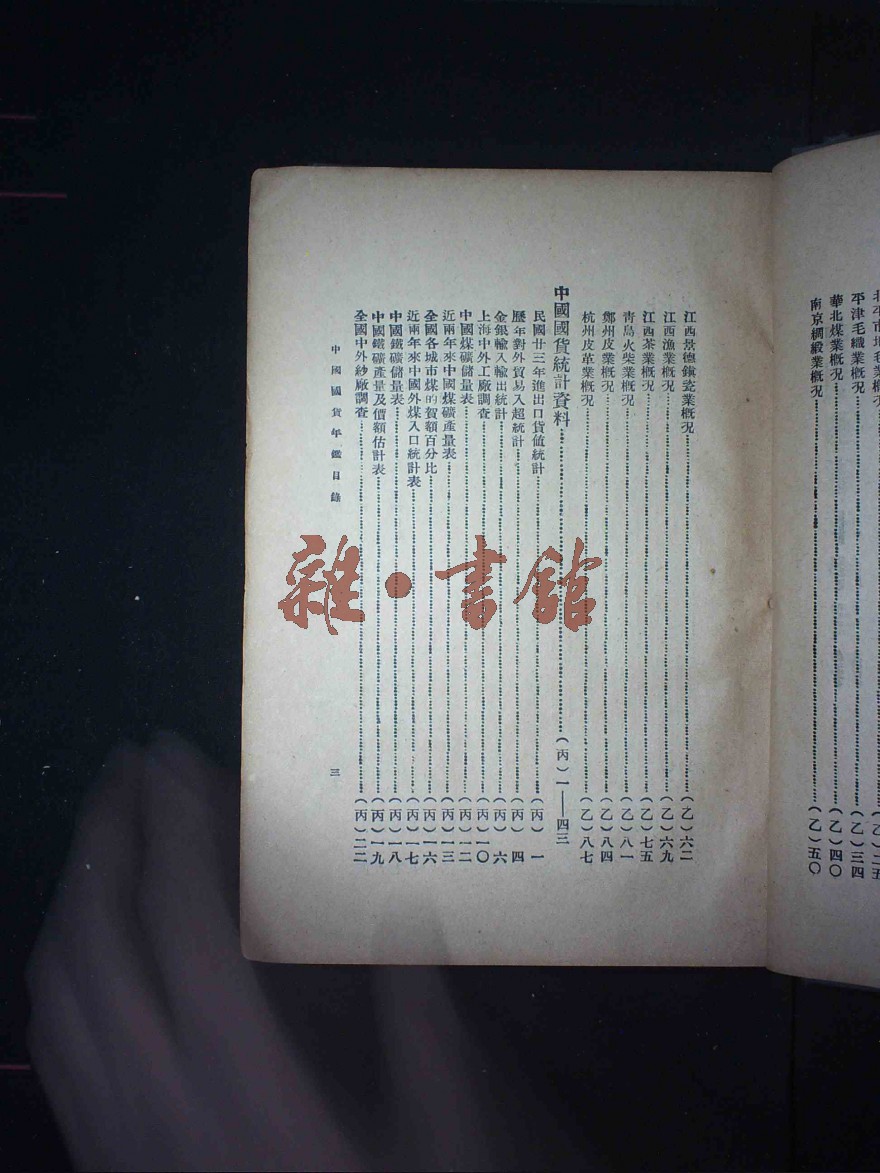 平津毛織業概況……(乙)三四
華北煤業概況……(乙)四〇
南京綢緞業概況……(乙)五〇
江西景德鎮瓷業概況……(乙)六二
江西漁業概況……(乙)六九
江西茶業概況……(乙)七五
青島火柴業概況……(乙)八一
鄭州皮業概況……(乙)八四
杭州皮革業概況……(乙)八七
中國國貨統計資料……(丙)一——四三
民國廿三年進出口貨値統計……(丙)一
歷年對外貿易入超統計……(丙)四
金銀輸入輸出統計……(丙)六
上海中外工廠調查……(丙)一〇
中國煤礦儲量表……(丙)一二
近兩年來中國煤礦產量表……(丙)一三
全國各城市煤的賀額百分比……(丙)一六
近兩年來中國外煤入口統計表……(丙)一七
中國鐵礦儲量表……(丙)一八
中國鐵礦產量及價額估計表……(丙)一九
全國中外紗廠調查……(丙)二二
中國國貨年鑑目錄
三
雜·書館